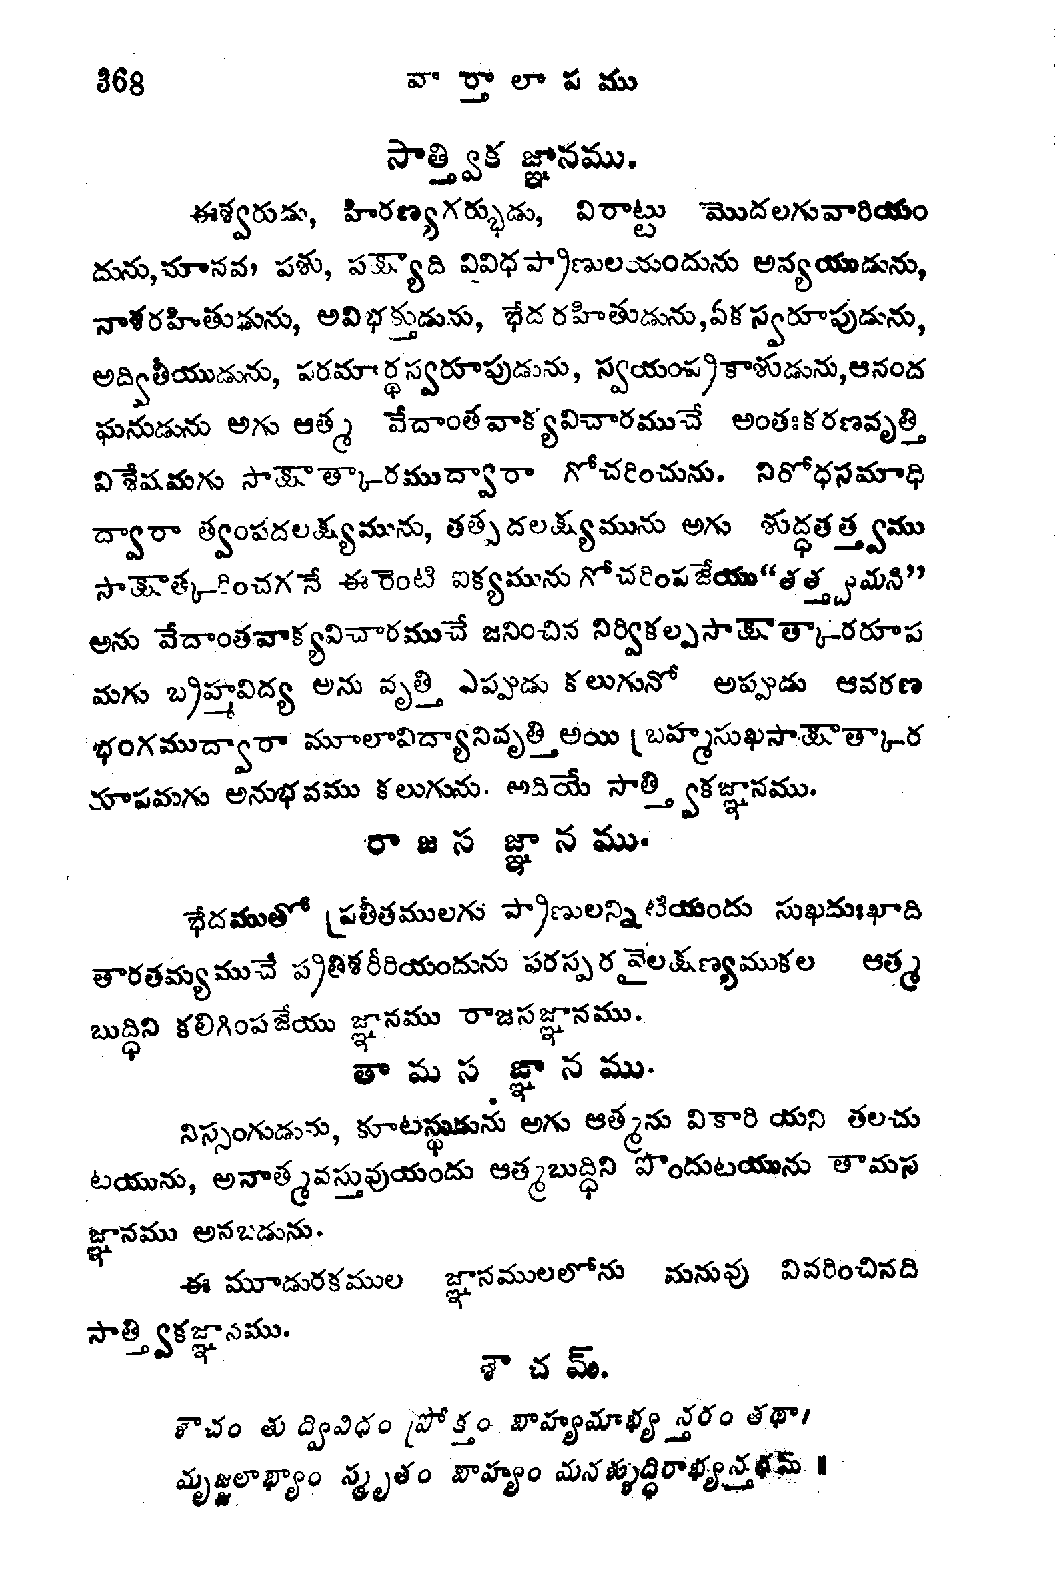 368 వార్తాలాపము
సాత్త్విక జ్ఞానము.
ఈశ్వరుడు, హిరణ్యగర్భుడు, విరాట్టు మొదలగువారియం
దును, మానవ, పశు, పక్ష్యాది వివిధప్రాణులయందును అన్వయుడును,
నాశరహితుడును, అవిభక్తుడును, భేదరహితుడును, ఏకస్వరూపుడును,
అద్వితీయుడును, పరమార్థస్వరూపుడును, స్వయంప్రకాశుడును,ఆనంద
ఘనుడును అగు ఆత్మ వేదాంతవాక్యవిచారముచే అంతఃకరణవృత్తి
విశేషమగు సాక్షాత్కారముద్వారా గోచరించును. నిరోధసమాధి
ద్వారా త్వంపదలక్ష్యమును, తత్పదలక్ష్యమును అగు శుద్ధతత్త్వము
సాక్షాత్కరించగనే ఈ రెంటి ఐక్యమును గోచరింపజేయు“తత్త్వమసి”
అను వేదాంతవాక్యవిచారముచే జనించిన నిర్వికల్పసాక్షాత్కారరూప
మగు బ్రహ్మవిద్య అను వృత్తి ఎప్పుడు కలుగునో అప్పుడు ఆవరణ
భంగముద్వారా మూలావిద్యానివృత్తి అయి బ్రహ్మసుఖసాక్షాత్కార
రూపమగు అనుభవము కలుగును. అదియే సాత్త్వికజ్ఞానము.
రాజస జ్ఞానము.
భేదముతో ప్రతీతములగు ప్రాణులన్నిటియందు సుఖదుఃఖాది
తారతమ్యముచే ప్రతిశరీరియందును పరస్పర వైలక్షణ్యముకల ఆత్మ
బుద్ధిని కలిగింపజేయు జ్ఞానము రాజసజ్ఞానము.
తామస జ్ఞానము.
నిస్సంగుడును, కూటస్థుడును అగు ఆత్మను వికారి యని తలచు
టయును, అనాత్మవస్తువుయందు ఆత్మబుద్ధిని పొందుటయును తామస
జ్ఞానము అనబడును.
ఈ మూడురకముల జ్ఞానములలోను మనువు వివరించినది
సాత్త్వికజ్ఞానము.
శౌచమ్.
శౌచం తు ద్వివిధం ప్రోక్తం బాహ్యమాభ్యన్తరం తథా।
మృజ్జలాభ్యాం స్మృతం బాహ్యం మనశ్శుద్ధిరాభ్యన్తరమ్ ॥